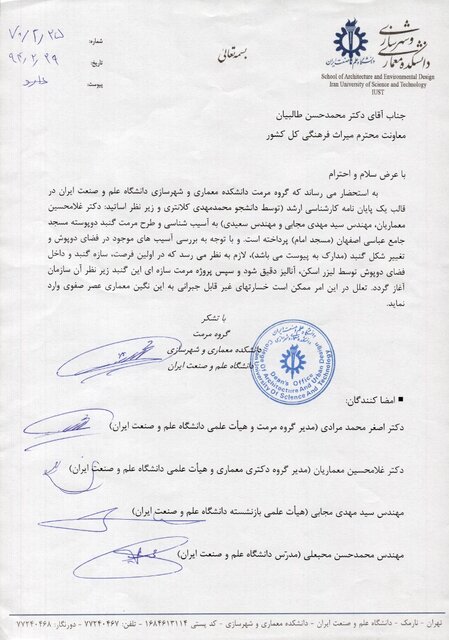 بسمه‌تعالی
شماره:
تاریخ: ۹۴/۲/۲۹
پیوست: ندارد
دانشکده معماری و شهرسازی
دانشگاه علم و صنعت ایران
School of Architecture and Environmental Design
Iran University of Science and Technology
IUST
جناب آقای دکتر محمدحسن طالبیان
معاونت محترم میراث فرهنگی کل کشور
با عرض سلام و احترام
به استحضار می رساند که گروه مرمت دانشکده معماری و شهرسازی دانشگاه علم و صنعت ایران در
قالب یک پایان نامه کارشناسی ارشد (توسط دانشجو محمدمهدی کلانتری و زیر نظر اساتید: دکتر غلامحسین
معماریان، مهندس سید مهدی مجابی و مهندس سعیدی) به آسیب شناسی و طرح مرمت گنبد دوپوسته مسجد
جامع عباسی اصفهان (مسجد امام) پرداخته است. و با توجه به بررسی آسیب های موجود در فضای دوپوش و
تغییر شکل گنبد (مدارک به پیوست می باشد)، لازم به نظر می رسد که در اولین فرصت، سازه گنبد و داخل
فضای دوپوش توسط لیزر اسکن، آنالیز دقیق شود و سپس پروژه مرمت سازه ای این گنبد زیر نظر آن سازمان
آغاز گردد. تعلل در این امر ممکن است خسارتهای غیر قابل جبرانی به این نگین معماری عصر صفوی وارد
نماید.
با تشکر
گروه مرمت
دانشکده معماری و شهرسازی
دانشگاه علم و صنعت ایران
Dean's Office
■ امضا کنندگان:
دکتر اصغر محمد مرادی (مدیر گروه مرمت و هیأت علمی دانشگاه علم و صنعت ایران)
دکتر غلامحسین معماریان (مدیر گروه دکتری معماری و هیأت علمی دانشگاه علم و صنعت ایران)
مهندس سید مهدی مجابی (هیأت علمی بازنشسته دانشگاه علم و صنعت ایران)
مهندس محمدحسن محبعلی (مدرّس دانشگاه علم و صنعت ایران)
تهران - نارمک - دانشگاه علم و صنعت ایران - دانشکده معماری و شهرسازی - کد پستی ۱۶۸۴۶۱۳۱۱۴ - تلفن: ۷۷۲۴۰۴۶۷ - دورنگار: ۷۷۲۴۰۴۶۸